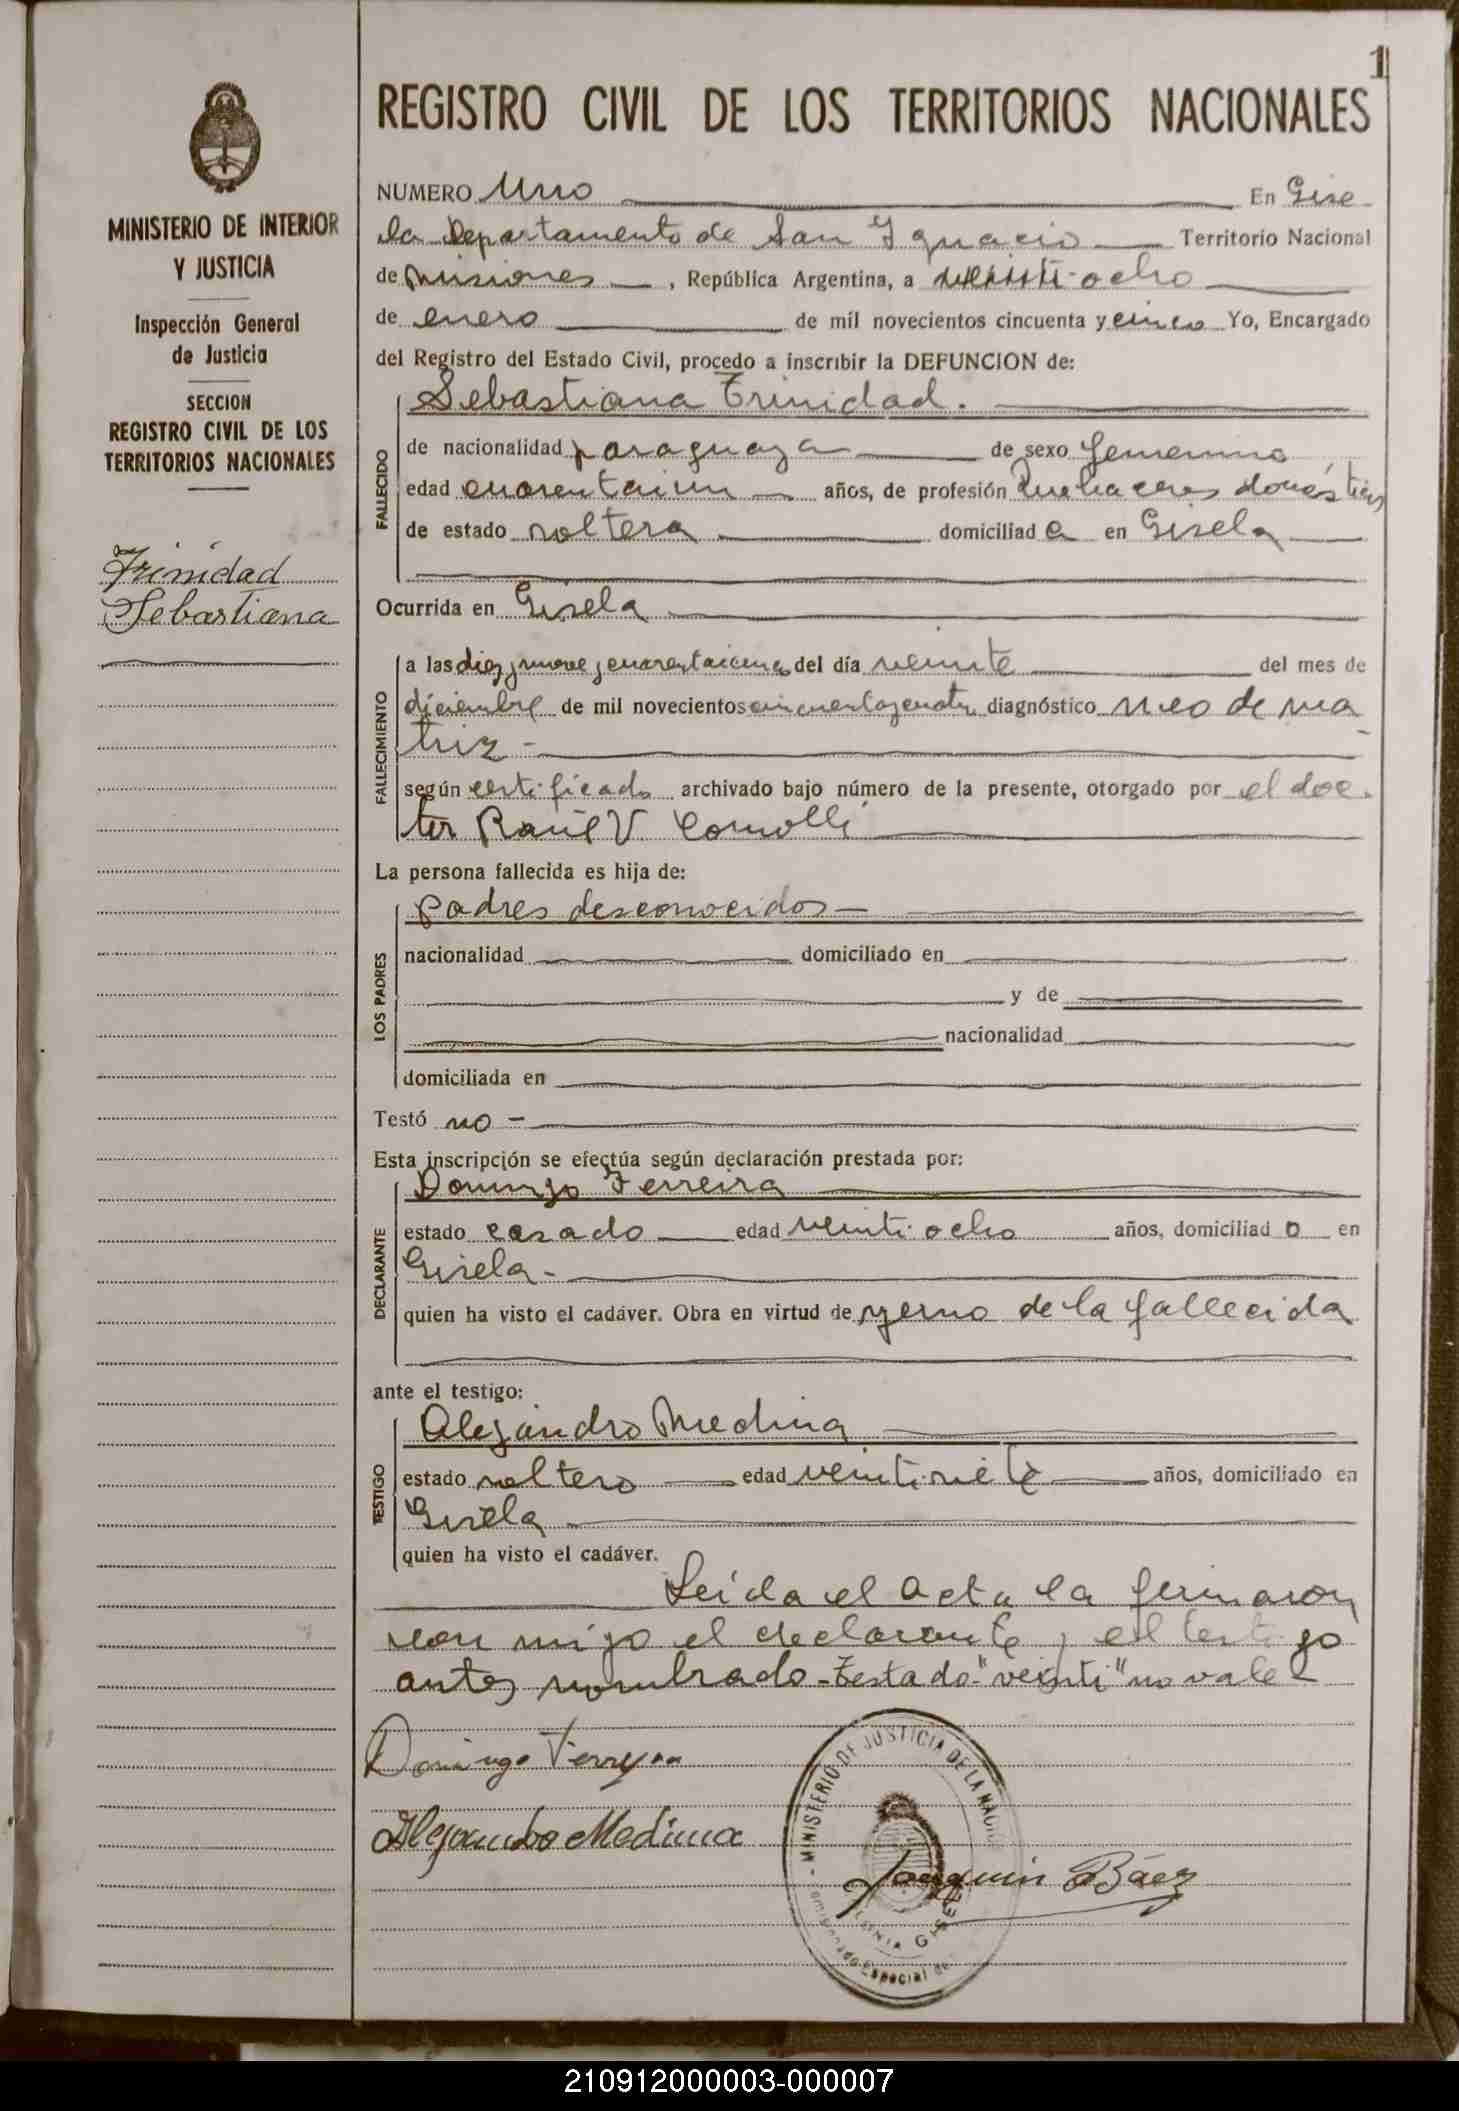 1
REGISTRO CIVIL DE LOS TERRITORIOS NACIONALES
MINISTERIO DE INTERIOR
Y JUSTICIA
Inspección General
de Justicia
SECCION
REGISTRO CIVIL DE LOS
TERRITORIOS NACIONALES
Trinidad
Sebastiana
NUMERO Uno En Gise
la Departamento de San Ignacio Territorio Nacional
de Misiones, República Argentina, a ocho
de enero de mil novecientos cincuenta y cinco Yo, Encargado
del Registro del Estado Civil, procedo a inscribir la DEFUNCION de:
Sebastiana Trinidad.
FALLECIDO
de nacionalidad paraguaya de sexo femenino
edad cuarentaiun años, de profesión Quehaceres domésticos
de estado soltera domiciliada en Gisela
Ocurrida en Gisela
FALLECIMIENTO
a las diez y nueve y cuarentaicinco del día veinte del mes de
diciembre de mil novecientos cincuentaycuatro diagnóstico neo de ma
triz -
según certificado archivado bajo número de la presente, otorgado por el doc.
tor Raúl V Comolli
La persona fallecida es hija de:
LOS PADRES
padres desconocidos
nacionalidad domiciliado en
y de
nacionalidad
domiciliada en
Testó no -
Esta inscripción se efectúa según declaración prestada por:
DECLARANTE
Domingo Ferreira
estado casado edad veintiocho años, domiciliado en
Gisela -
quien ha visto el cadáver. Obra en virtud de yerno de la fallecida
ante el testigo:
TESTIGO
Alejandro Medina
estado soltero edad veintisiete años, domiciliado en
Gisela
quien ha visto el cadáver.
Leída el acta la firmaron
con migo el declarante y el testigo
antes nombrado - Testado "veinti" no vale -
Domingo Ferreyra
Alejandro Medina
Joaquin Báez
MINISTERIO DE JUSTICIA DE LA NACION
Especial de
210912000003-000007